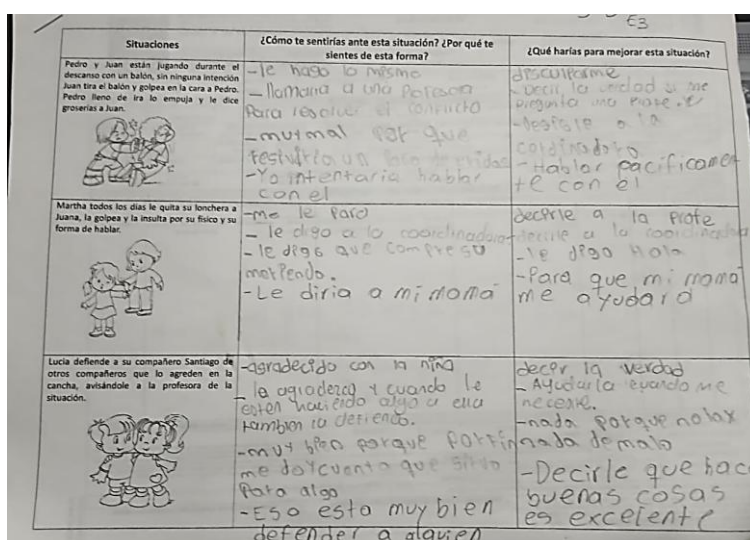 E3
Situaciones
¿Cómo te sentirías ante esta situación? ¿Por qué te
sientes de esta forma?
¿Qué harías para mejorar esta situación?
Pedro y Juan están jugando durante el
descanso con un balón, sin ninguna intención
Juan tira el balón y golpea en la cara a Pedro.
Pedro lleno de ira lo empuja y le dice
groserías a Juan.
-le hago lo mismo
-llamaria a una
Para resolver el conflicto
-muy mal por que
-Yo intentaria hablar
con el
disculparme
-Decir la verdad si me
pregunta una
a la
-Hablar pacificamen
te con el
Martha todos los días le quita su lonchera a
Juana, la golpea y la insulta por su físico y su
forma de hablar.
-me le paro
-le digo a la coordinadora
-le digo que compre su
-Le diria a mi mamá
decirle a la profe
decirle a la coordinadora
-le digo Hola
-Para que mi mamá
me ayudara
Lucia defiende a su compañero Santiago de
otros compañeros que lo agreden en la
cancha, avisándole a la profesora de la
situación.
-agradecido con la niña
-le agradezco y cuando le
esten haciendo algo a ella
tambien la defiendo.
-muy bien porque
me doy cuenta que sirvo
Para algo
-Eso esta muy bien
defender a alguien
decir la verdad
-Ayudarla cuando me
necesite.
-nada porque no hay
nada de malo
-Decirle que hac
buenas cosas
es excelente